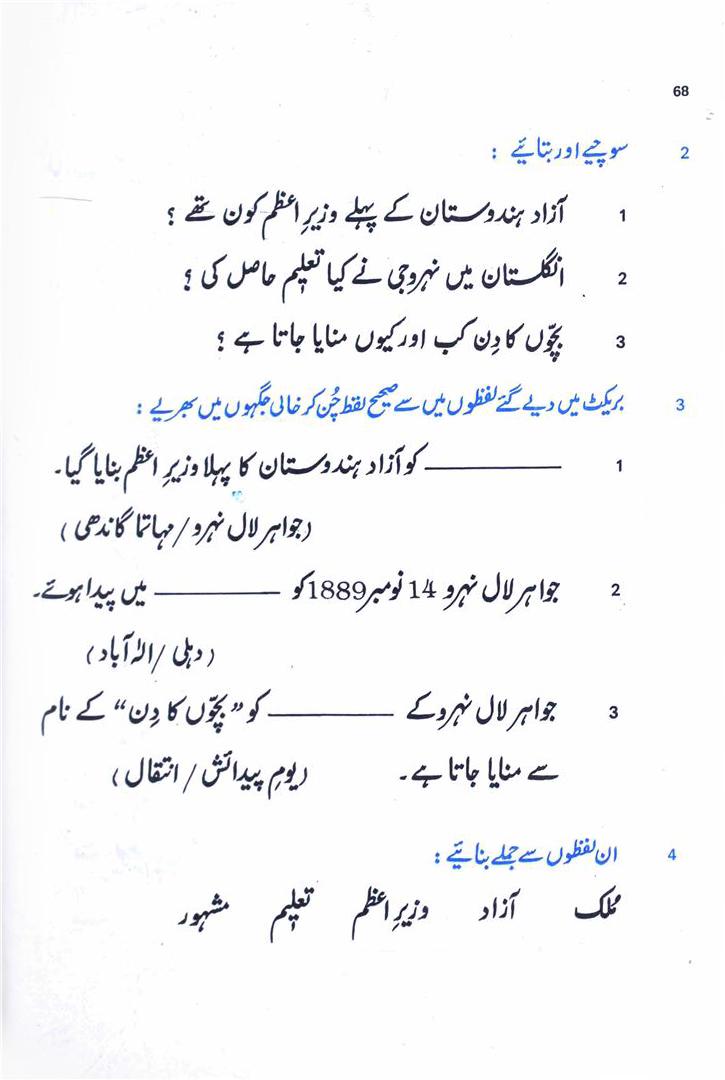 68
2 سوچیے اور بتائیے :
1 آزاد ہندوستان کے پہلے وزیرِ اعظم کون تھے ؟
2 انگلستان میں نہرو جی نے کیا تعلیم حاصل کی ؟
3 بچّوں کا دِن کب اور کیوں منایا جاتا ہے ؟
3 بریکٹ میں دیے گئے لفظوں میں سے صحیح لفظ چُن کر خالی جگہوں میں بھریے :
1 ــــــــــــ کو آزاد ہندوستان کا پہلا وزیرِ اعظم بنایا گیا۔
(جواہر لال نہرو / مہاتما گاندھی)
2 جواہر لال نہرو 14 نومبر 1889 کو ــــــــــــ میں پیدا ہوئے۔
(دہلی / الٰہ آباد)
3 جواہر لال نہرو کے ــــــــــــ کو ”بچّوں کا دِن“ کے نام
سے منایا جاتا ہے۔ (یومِ پیدائش / انتقال)
4 ان لفظوں سے جملے بنائیے :
مُلک آزاد وزیرِ اعظم تعلیم مشہور